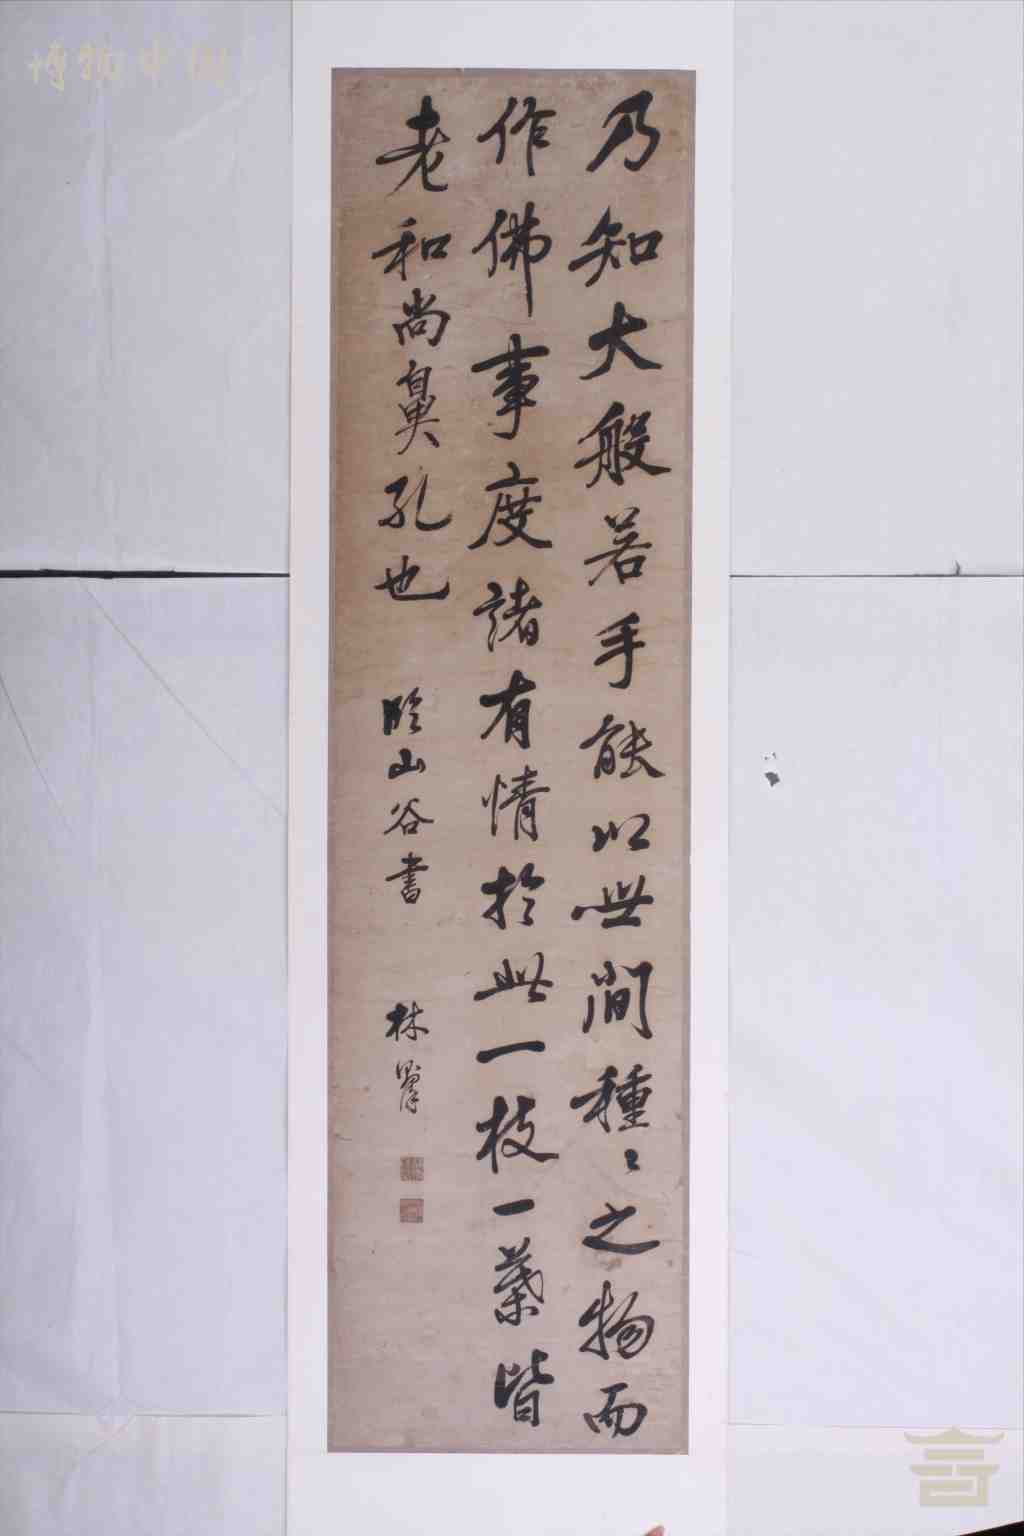 乃知大般若手能以世間種〻之物而
作佛事度諸有情於此一枝一葉皆
老和尚鼻孔也
臨山谷書
林
博物中国